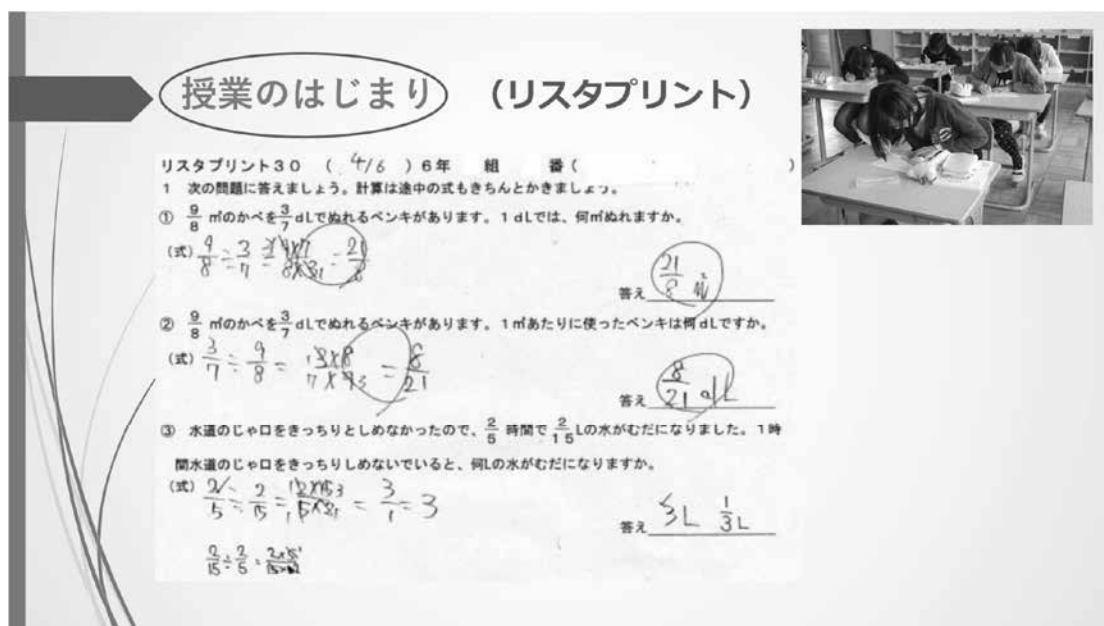 授業のはじまり (リスタプリント)
リスタプリント30 ( 4/6 ) 6年 組 番( )
1 次の問題に答えましょう。計算は途中の式もきちんとかきましょう。
① 9/8 ㎡のかべを3/7dLでぬれるペンキがあります。1dLでは、何㎡ぬれますか。
(式) 9/8 ÷ 3/7 = 9×7/8×3 = 21/8
答え 21/8 ㎡
② 9/8 ㎡のかべを3/7dLでぬれるペンキがあります。1㎡あたりに使ったペンキは何dLですか。
(式) 3/7 ÷ 9/8 = 3×8/7×9 = 8/21
答え 8/21 dL
③ 水道のじゃ口をきっちりとしめなかったので、2/5 時間で 2/15Lの水がむだになりました。1時
間水道のじゃ口をきっちりしめないでいると、何Lの水がむだになりますか。
(式) 2/5 ÷ 2/15 = 2×15/5×2 = 3/1 = 3
答え 3L 1/3L
2/15 ÷ 2/5 =